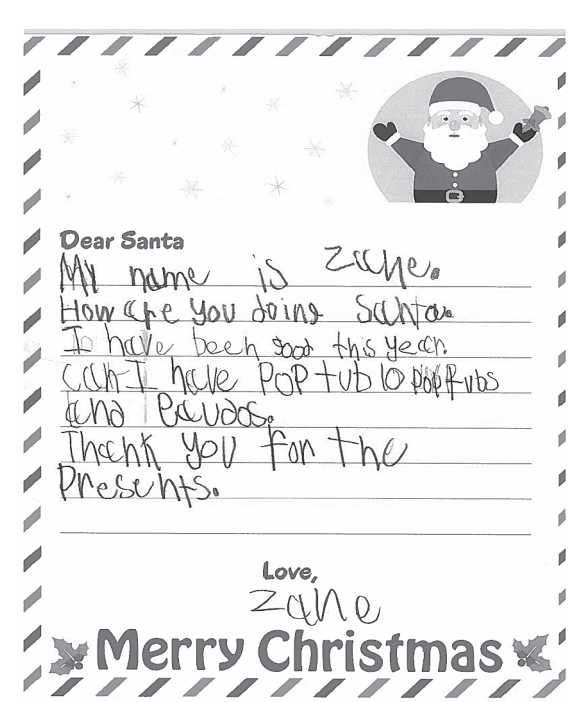 Dear Santa
My name is Zane.
How are you doing Santa.
I have been good this year.
can I have POP tub 10 POP tubs
and
Thank you for the
Presents.
Love,
Zane
Merry Christmas